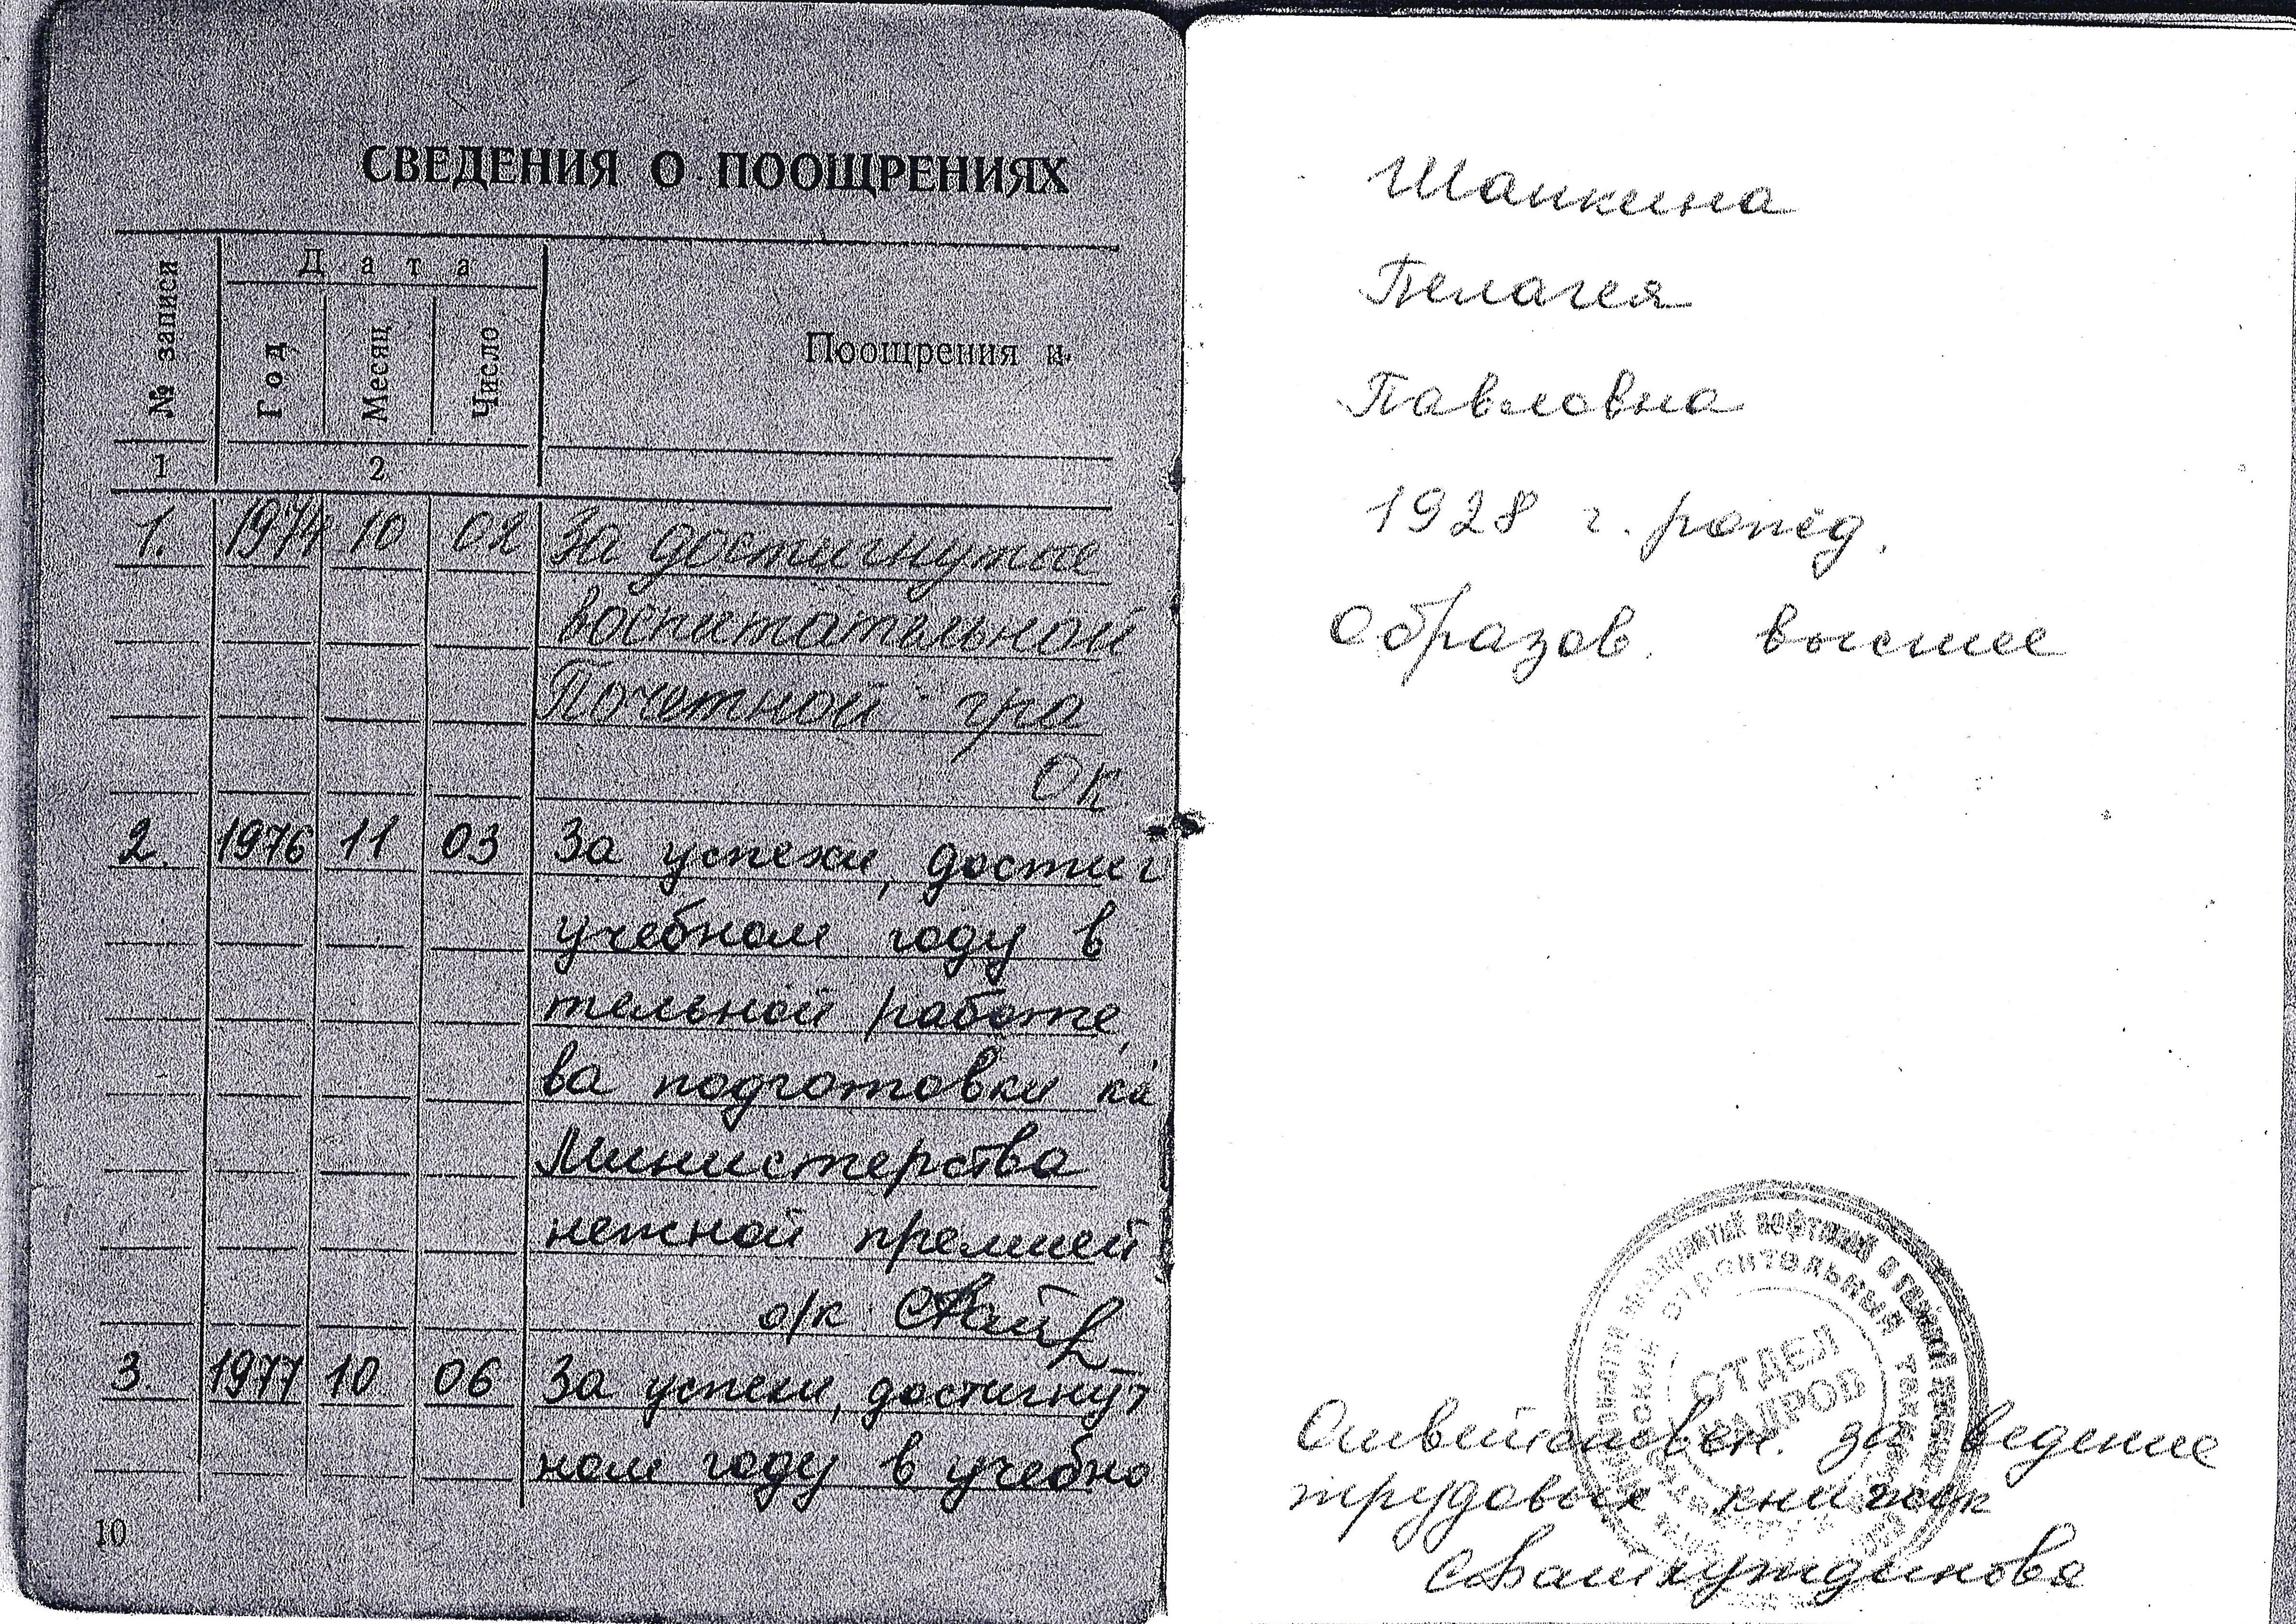 СВЕДЕНИЯ О ПООЩРЕНИЯХ
№ записи
Дата
Год
Месяц
Число
Поощрения и
1
2
1. 1974 10 02 За достигнутые
воспитательной
Почетной гра
ОК
2. 1976 11 03 За успехи, достиг
учебном году в
тельной работе,
ва подготовки ка
Министерства
нежной премией
о/к
3. 1977 10 06 За успехи, достигнут
ном году в учебно
10
Шапкина
Пелагея
Павловна
1928 г. рожд.
Образов. высшее
ОТДЕЛ
КАДРОВ
СТРОИТЕЛЬНЫЙ
Ответствен. за ведение
трудовых книжек